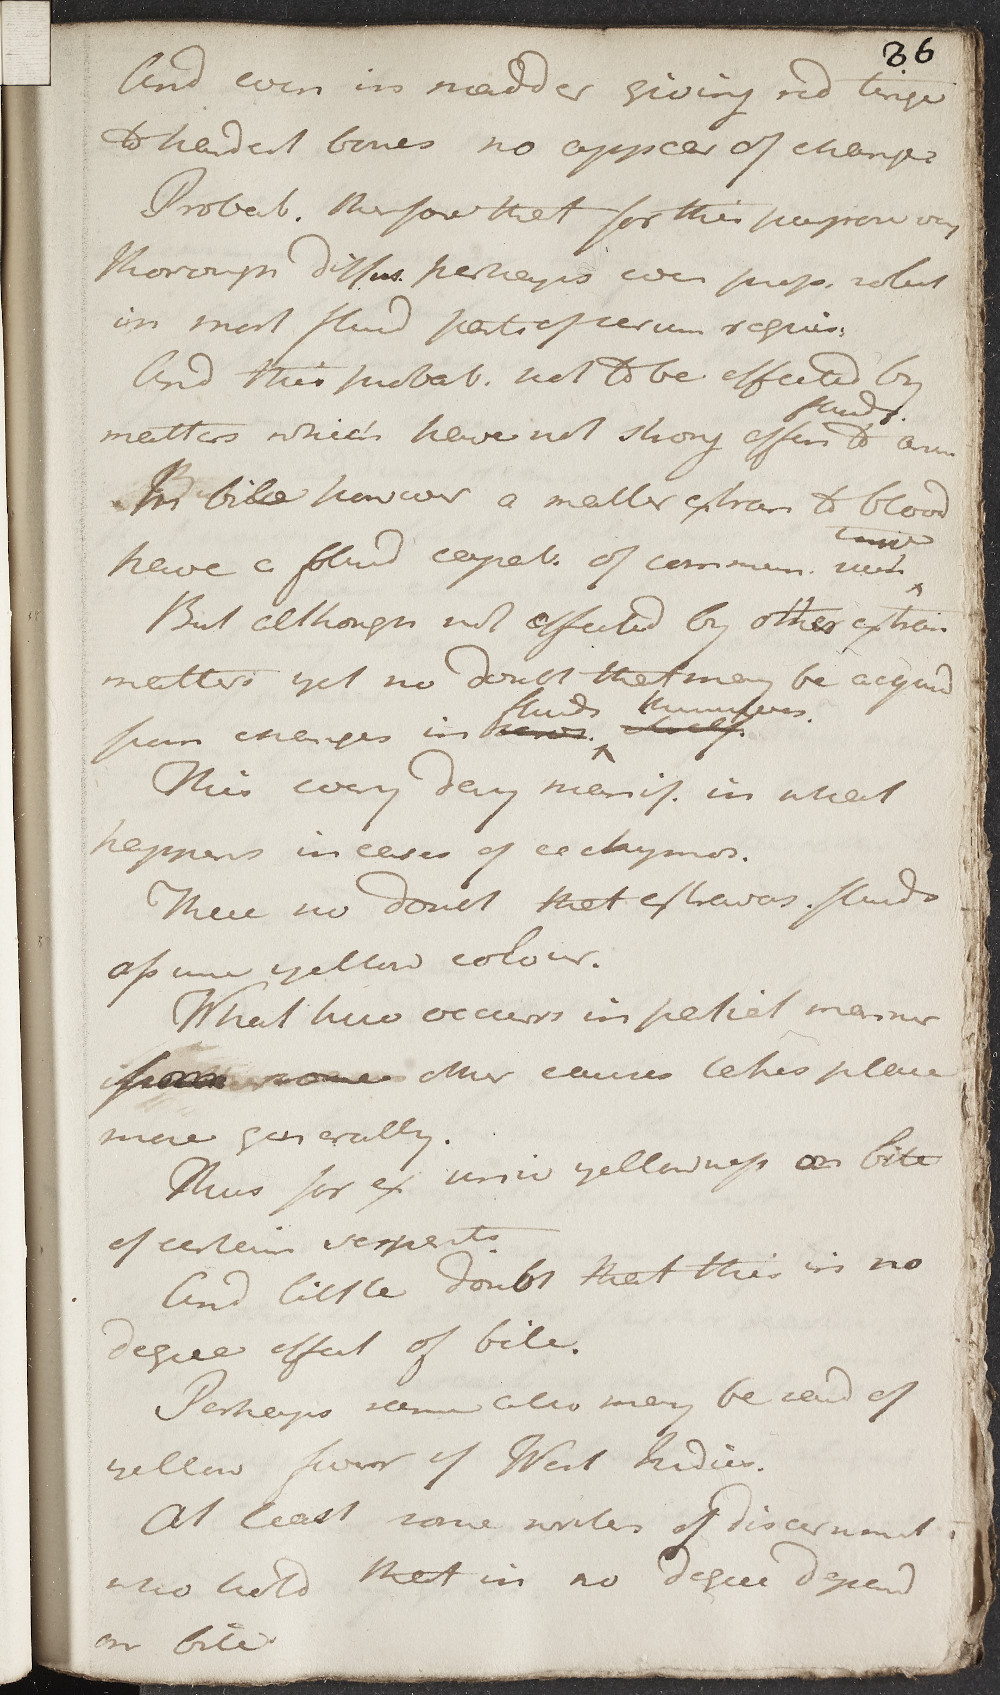 36
And even in madder giving red tinge
to hardest bones no appear of change
Probab. therefore that for this purpose very
thorough diffus. perhaps even prop. solut
in most fluid parts of serum requis.
And this probab. not to be effected by
matters which have not strong affin to anim fluids.
In bile however a matter extran to blood
have a fluid capab. of commun. such tinge
But although not affected by other extran
matters yet no doubt that may be acquired
from changes in fluids themselves.
This every day manif. in what
happens in cases of ecchymos.
There no doubt that extravas. fluids
assume yellow colour.
What here occurs in partial manner
from some other causes takes place
more generally.
Thus for ex univ yellowness on bite
of certain serpents.
And little doubt that this in no
degree effect of bile.
Perhaps same also may be said of
yellow fever of West Indies.
At least some writers of discernment
who hold that in no degree depend
on bile